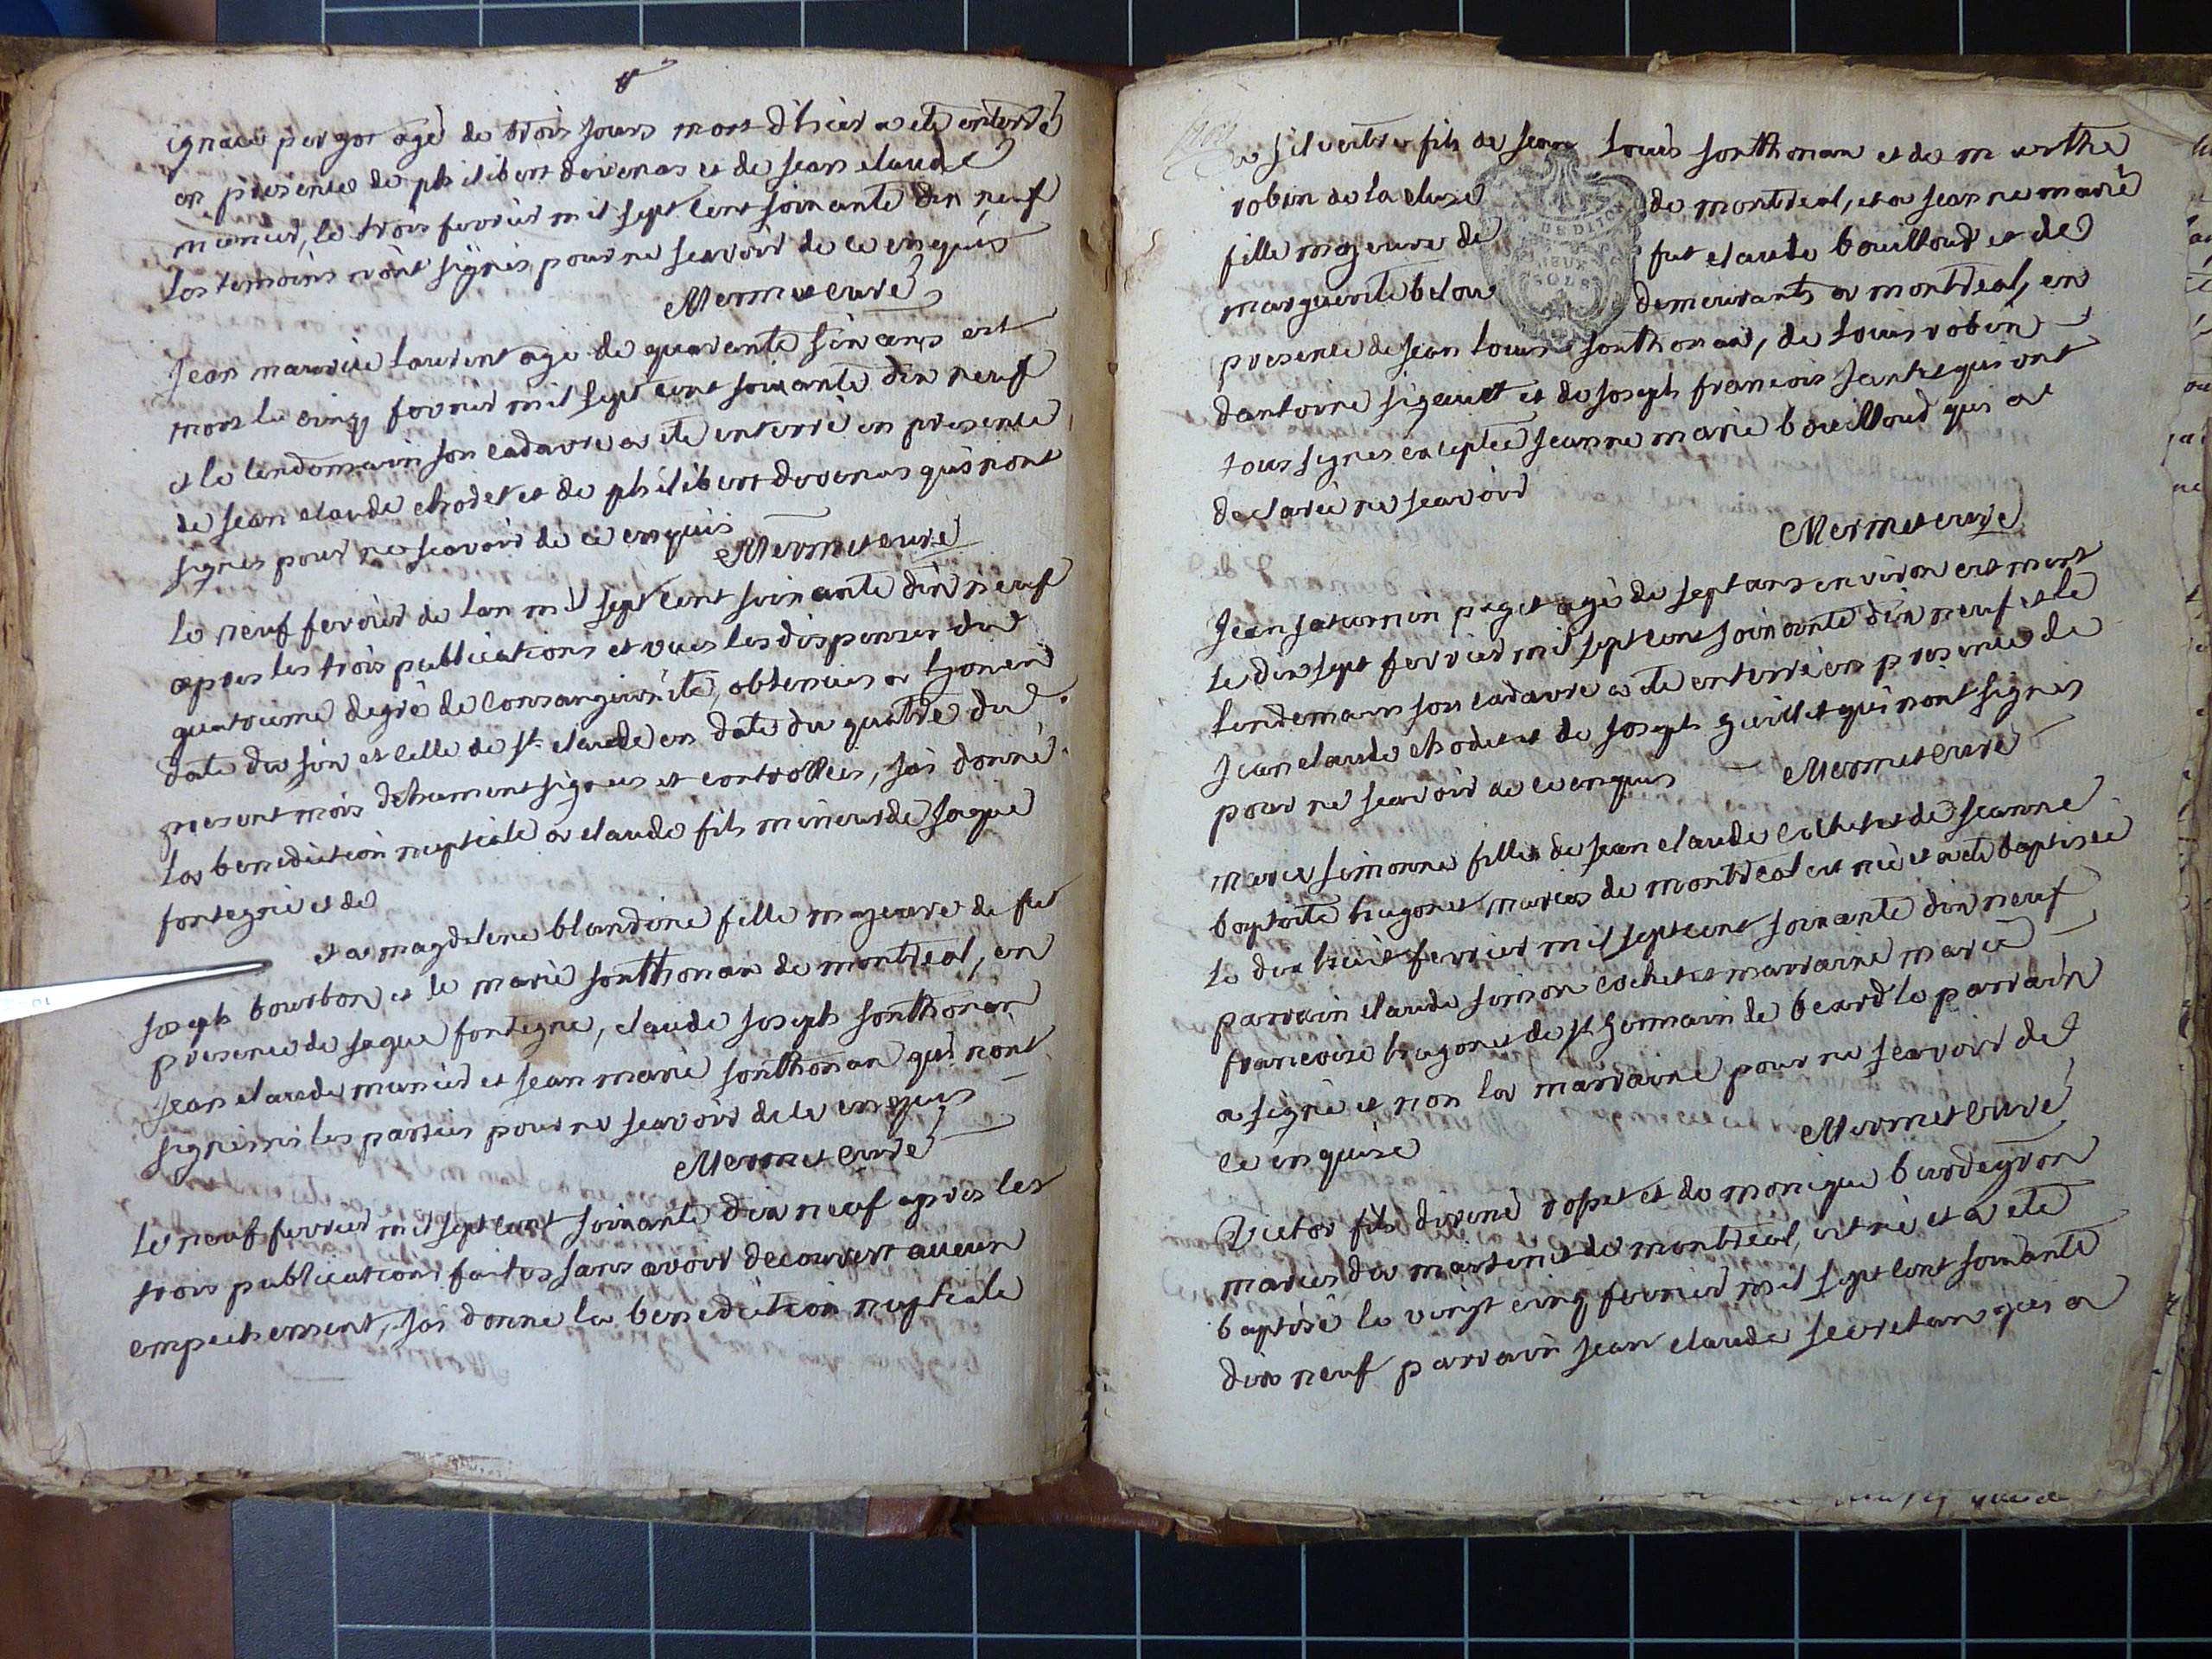 ignace pergor agé de trois jours mort d'hier a ete enterré
en presence de philibert devenas et de jean claude
munier, le trois fevrier mil sept cent soixante dix neuf
les temoins n'ont signes pour ne scavoir de ce enquis
Mermet curé
Jean maurice laurent agé de quarante six ans est
mort le cinq fevrier mil sept cent soixante dix neuf
et le lendemain son cadavre a ete enterré en presence
de jean claude chodet et de philibert devenas qui nont
signes pour ne scavoir de ce enquis
Mermet curé
le neuf fevrier de lan mil sept cent soixante dix neuf
apres les trois publications et vues les dispenses du
quatrieme degré de consanguinité, obtenues a lyon en
date du six et celle de st claude en date du quatre du
present mois dehument signees et controllees, jai donné
la benediction nuptiale a claude fils mineur de jaque
fontegne et de
et a magdelene blandine fille mageure de fut
joseph bourbon et le marie sonthonax de montreal, en
presence de jaque fontegne, claude joseph sonthonax
jean claude munier et jean marie sonthonax qui nont
signes ni les parties pour ne scavoir de ce enquis
Mermet curé
le neuf fevrier mil sept cent soixante dix neuf apres les
trois publications faites sans avoir decouvert aucun
empechement, jai donne la benediction nuptiale
a silvestre fils de jean louis sonthonax et de marthe
robin de la cluse de montreal, et a jeanne marie
fille mageure de fut claude bouilloud et de
marguerite belou demeurants a montreal, en
presence de jean louis sonthonax, de louis robin
dantoine sigault et de joseph francois qui ont
tous signes exceptée jeanne marie bouilloud qui a
declarée ne scavoir
Mermet curé
Jean saturnin paget agé de sept ans environ est mort
le dix sept fevrier mil sept cent soixante dix neuf et le
lendemain son cadavre a ete enterré en presence de
jean claude chodet et de joseph guillet qui n'ont signes
pour ne scavoir de ce enquis Mermet curé
marie simonne fille de jean claude cochet et de jeanne
baptiste hugonet maries de montreal est née et a ete baptisée
le dix huit fevrier mil sept cent soixante dix neuf
parrain claude simon cochet et marraine marie
francoise hugonet de st germain de beard le parrain
a signé et non la marraine pour ne scavoir de
ce enquise
Mermet curé
Victor fils direné ropet et de monique burdeyron
maries du martinet de montreal, est né et a ete
baptisé le vingt cinq fevrier mil sept cent soixante
dix neuf parrain jean claude secretan qui a